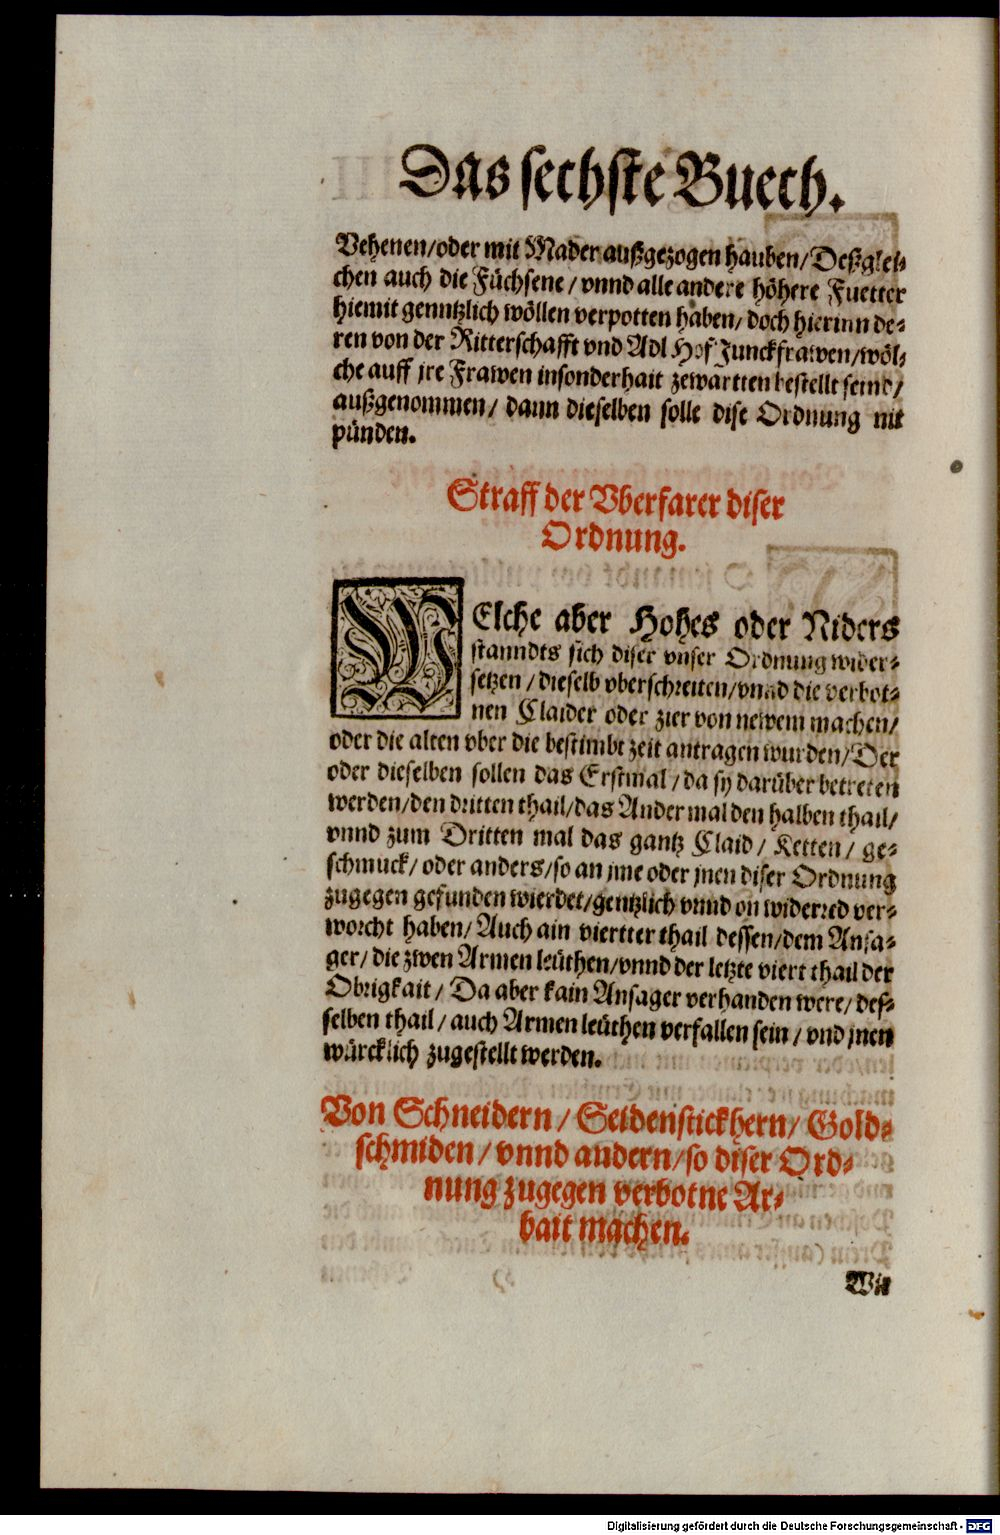 Das sechste Buech.
Vehenen/oder mit Mader außgezogen hauben/Deßglei-
chen auch die Füchsene/vnnd alle andere höhere Fuetter
hiemit genntzlich wöllen verpotten haben/doch hierinn de-
ren von der Ritterschafft vnd Adl Hof Junckfrawen/wöl-
che auff jre Frawen insonderhait zewartten bestellt seind/
außgenommen/dann dieselben solle dise Ordnung nit
pünden.
Straff der Vberfarer diser
Ordnung.
WElche aber Hohes oder Niders
stanndts sich diser vnser Ordnung wider-
setzen/dieselb vberschreiten/vnnd die verbot-
nen Claider oder zier von newem machen/
oder die alten vber die bestimbt zeit antragen wurden/Der
oder dieselben sollen das Erstmal/da sy darüber betreten
werden/den dritten thail/das Ander mal den halben thail/
vnnd zum Dritten mal das gantz Claid/Ketten/ge-
schmuck/oder anders/so an jme oder jnen diser Ordnung
zugegen gefunden wierdet/gentzlich vnnd on widerred ver-
worcht haben/Auch ain viertter thail dessen/dem Ansa-
ger/die zwen Armen leüthen/vnnd der letzte viert thail der
Obrigkait/Da aber kain Ansager verhanden were/des-
selben thail/auch Armen leüthen verfallen sein/vnd jnen
würcklich zugestellt werden.
Von Schneidern/Seidenstickhern/Gold-
schmiden/vnnd andern/so diser Ord-
nung zugegen verbotne Ar-
bait machen.
Wir
Digitalisierung gefördert durch die Deutsche Forschungsgemeinschaft - DFG